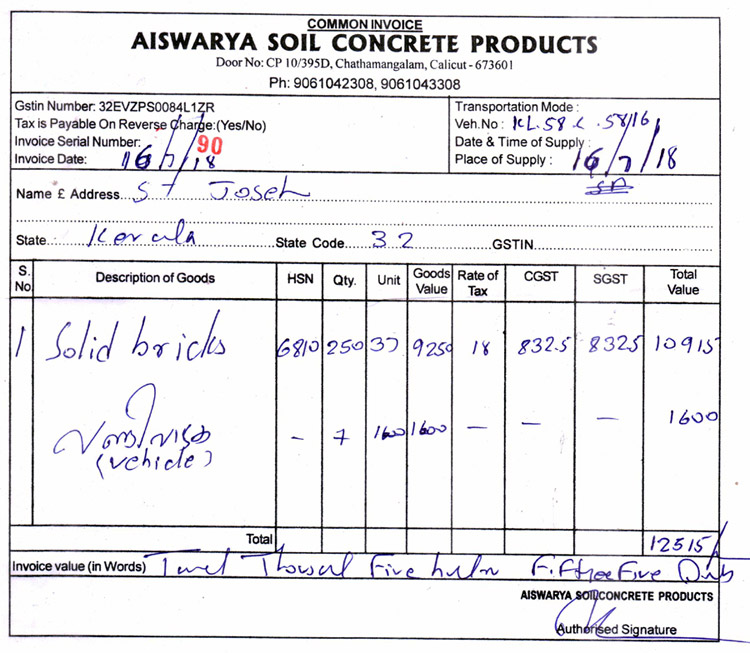 COMMON INVOICE
AISWARYA SOIL CONCRETE PRODUCTS
Door No: CP 10/395D, Chathamangalam, Calicut - 673601
Ph: 9061042308, 9061043308
Gstin Number: 32EVZPS0084L1ZR
Tax is Payable On Reverse Charge:(Yes/No)
Invoice Serial Number: 90
Invoice Date: 16/7/18
Transportation Mode :
Veh.No : KL.58 L .58/16,
Date & Time of Supply :
Place of Supply : 16/7/18
Name £ Address St Joseh
State Kerala State Code 32 GSTIN
S. No. Description of Goods HSN Qty. Unit Goods Value Rate of Tax CGST SGST Total Value
1 Solid bricks 6810 250 37 9250 18 832.5 832.5 10915
വണ്ടിവാടക - 1600 1600 - - - 1600
(vehicle)
Total 12515/
Invoice value (in Words) Five Only
AISWARYA SOIL CONCRETE PRODUCTS
Authorised Signature